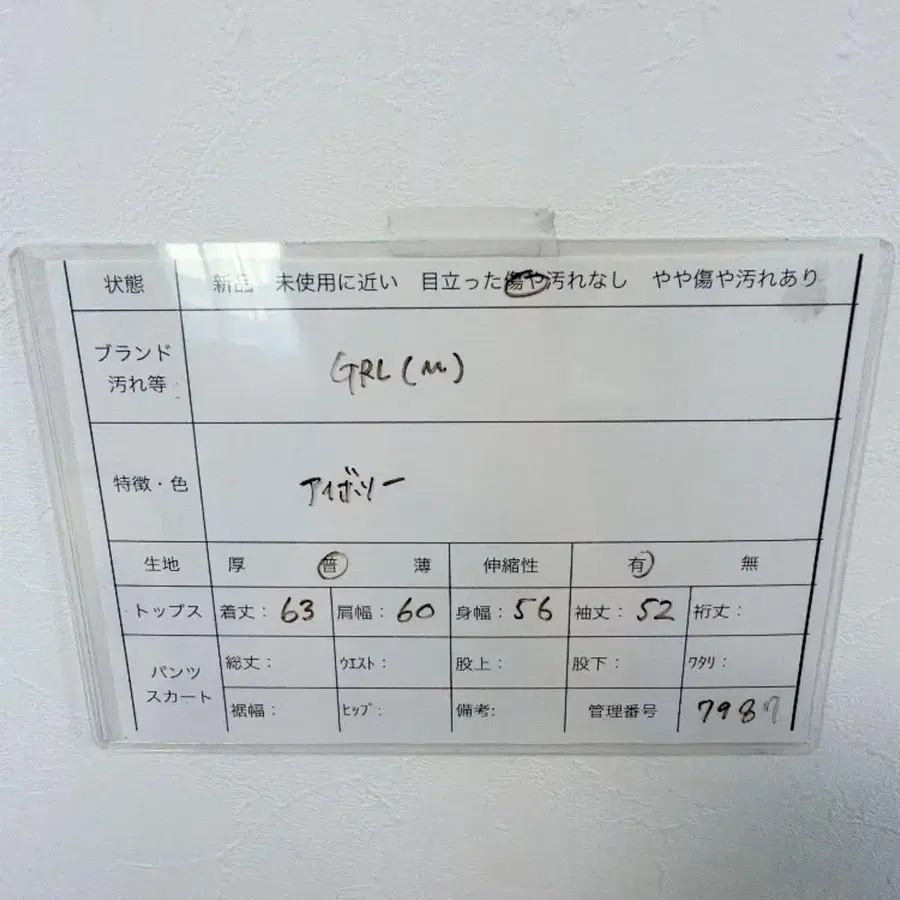 状態 新品 未使用に近い 目立った傷や汚れなし やや傷や汚れあり
ブランド
汚れ等
GRL(M)
特徴・色 アイボリー
生地 厚 普 薄 伸縮性 有 無
トップス 着丈: 63 肩幅: 60 身幅: 56 袖丈: 52 裄丈:
パンツ
スカート
総丈: ウエスト: 股上: 股下: ワタリ:
裾幅: ヒップ: 備考: 管理番号 7987